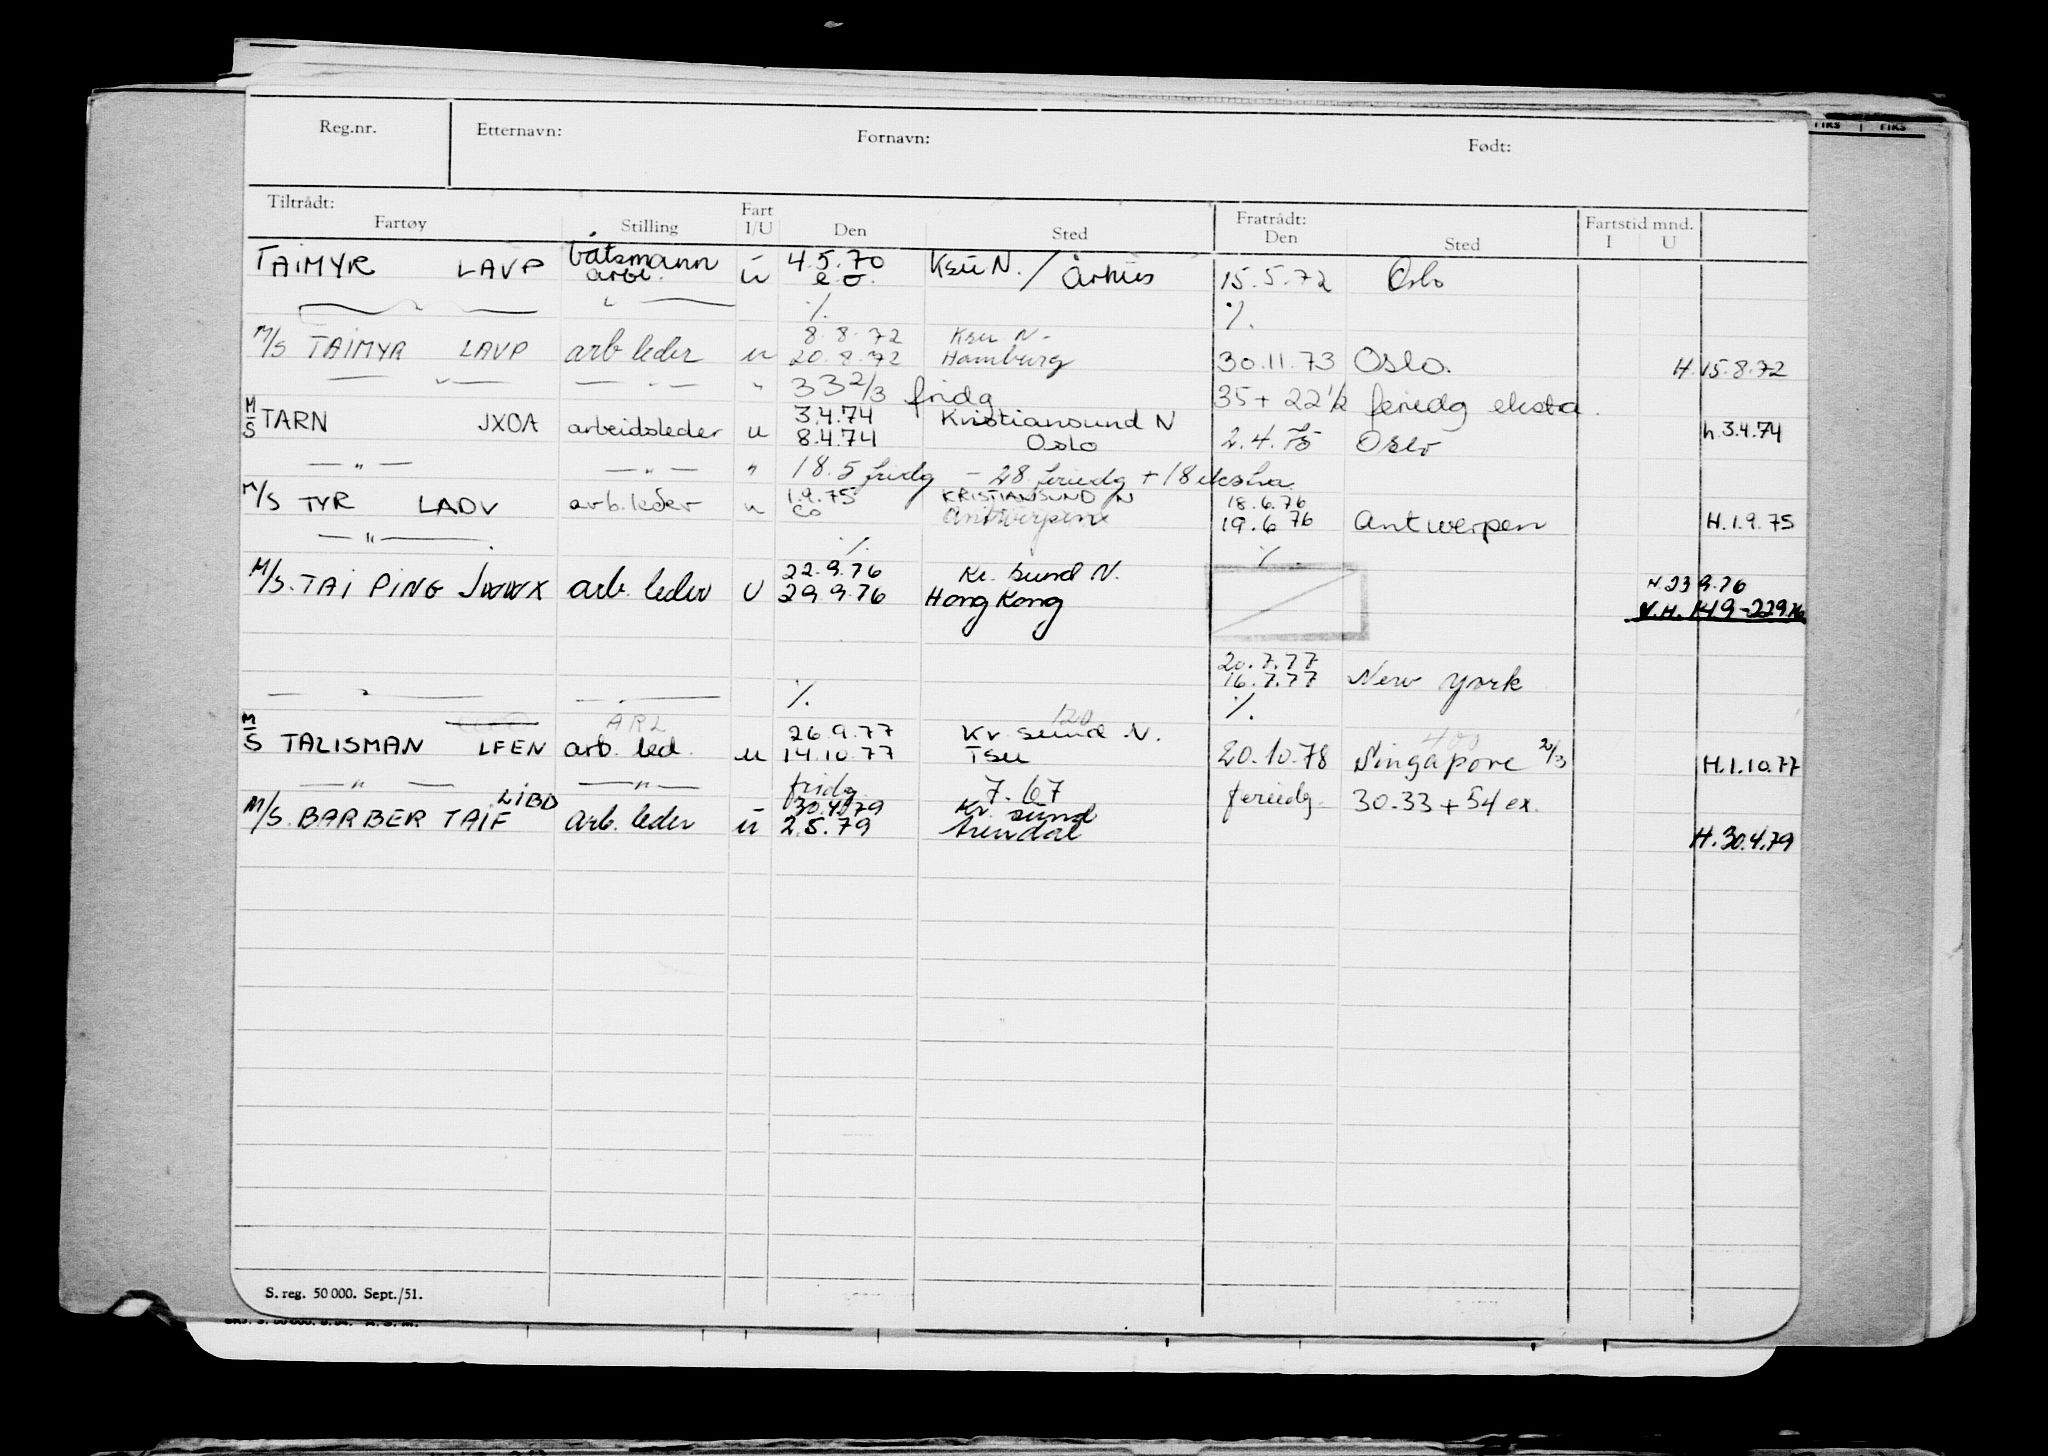 Reg.nr. Etternavn: Fornavn: Født:
Tiltrådt: Fratrådt: Fartstid mnd.
Fartøy Stilling Fart I/U Den Sted Den Sted I U
TAIMYR LAVP båtsmann ü 4.5.70 Ksu N. / Århus 15.5.72 Oslo
arbl. e.o.
— " — — " — % %
M/S TAIMYR LAVP arb leder u 8.8.72 Ksu N.
20.8.72 Hamburg 30.11.73 Oslo. H.15.8.72
— " — — " — " 33 2/3 fridg 35 + 22 1/2 feriedg ekstra.
M/S TARN JXOA arbeidsleder u 3.4.74 Kristiansund N
8.4.74 Oslo 2.4.75 Oslo h.3.4.74
— " — — " — " 18.5 fridg - 28 feriedg + 18 ekstra
M/S TYR LADV arb.leder u 1.9.75 KRISTIANSUND N 18.6.76
co Antwerpen 19.6 76 Antwerpen H.1.9.75
— " — % %
M/S. TAI PING JWWX arb. leder U 22.9.76 Kr. Sund N. H.23 9.76
29.9.76 Hong Kong V.H. 14.9-22.9.76
20.7.77
16.7.77 New York
— " — — " — % %
ARL 120
M/S TALISMAN LFEN arb. led. u 26.9.77 Kr sund N. 400
14.10.77 Tsu 20.10.78 Singapore 2/3 H.1.10.77
— " — — " — fridg 7.67 feriedg. 30.33 + 54 ex.
M/S. BARBER TAIF LIBD arb. leder ü 30.4.79 Kr. sund
2.5.79 Arendal H.30.4.79
S. reg. 50 000. Sept./51.